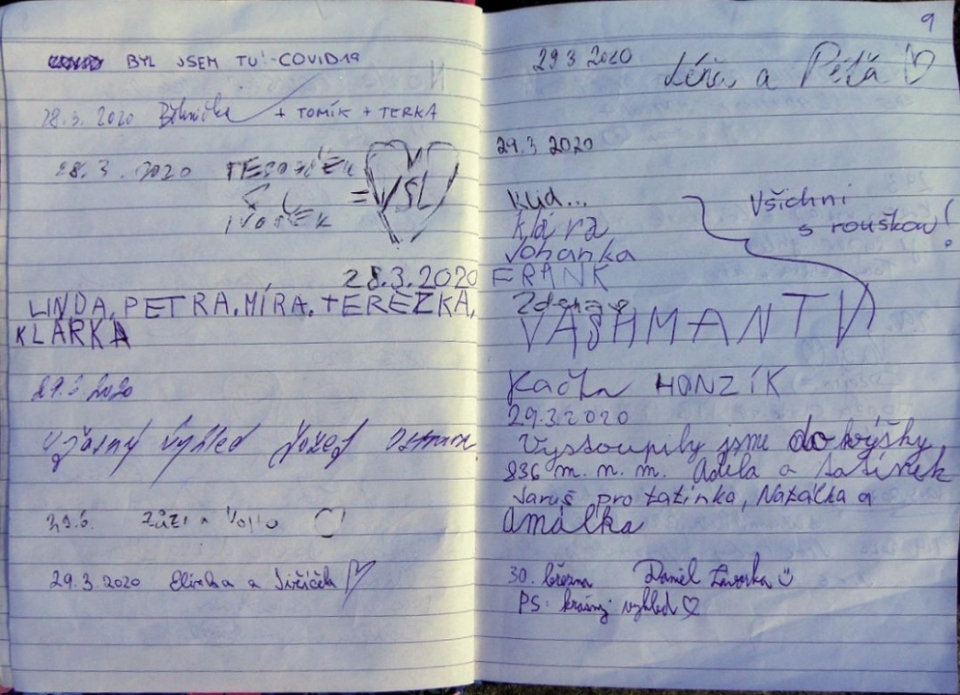 BYL JSEM TU! - COVID19
28.3.2020 + TOMÍK + TERKA
28.3.2020
= VSL
28.3.2020
LINDA, PETRA, MÍRA, TEREZKA,
KLÁRKA
29.3.2020
Úžasný výhled Jozef
29.3.
29.3.2020 Eliška a Jiříček
9
29.3.2020
a Péťa
29.3.2020
Klid...
Klára
Johanka
FRANK
VASHMANTV
Všichni
s rouškou!
Kačka HONZÍK
29.3.2020
Vystoupily jsme do výšky
836 m.n.m. Adéla a tatínek
Jaruš pro tatínka, Natálka a
Amálka
30. března Daniel
PS: krásný výhled